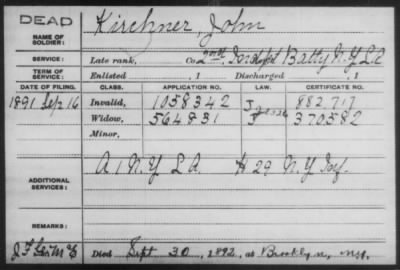 DEAD
NAME OF SOLDIER: Kirschner, John
SERVICE: Late rank, Co. 2nd Indpt Batty N.Y. L.A.
TERM OF SERVICE: Enlisted , 1 Discharged , 1
DATE OF FILING. CLASS. APPLICATION NO. LAW. CERTIFICATE NO.
1891 Sep 16 Invalid, 1058342 J 882.717
Widow, 564831 370582
Minor,
ADDITIONAL SERVICES: A 1 N.Y. L.A. H 29 N.Y. Inf.
REMARKS:
Died Sept 30, 1892, at Brooklyn, N.Y.